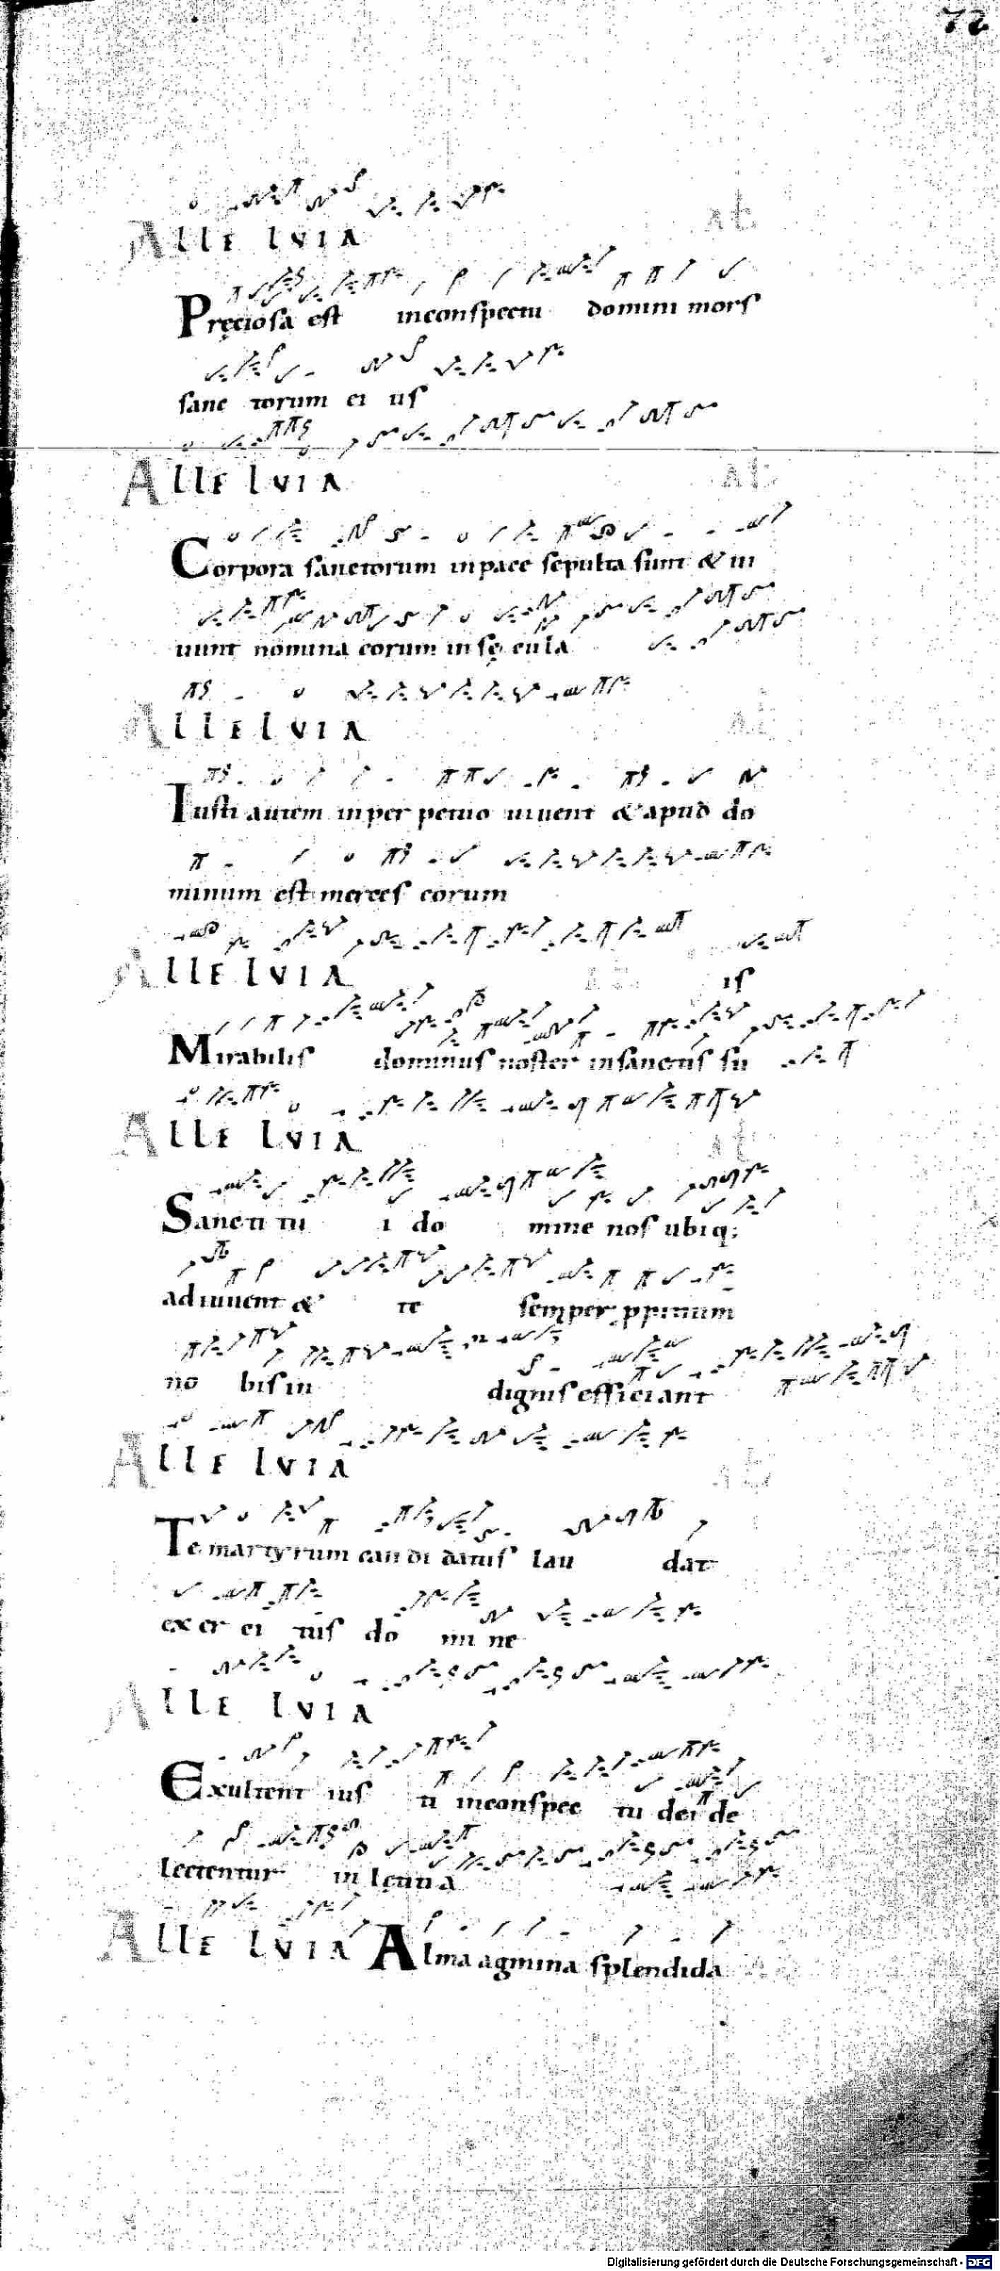 72
ALLE LVIA
Pręciosa est inconspectu domini mors
sanc torum ei us
ALLE LVIA
Corpora sanctorum inpace sepulta sunt & ui
uunt nomina eorum in sę cula
ALLELVIA
Iusti autem inper petuo uiuent & apud do
minum est merces eorum
ALLE LVIA
is
Mirabilis dominus noster insanctis su
ALLE LVIA
Sancti tu i do mine nos ubiq;
adiuuent & te semper ppitium
no bis in dignis efficiant
ALLE LVIA
Te martyrum can di datus lau dat
ex er ci tus do mi ne
ALLE LVIA
Exultent ius ti inconspec tu dei de
lectentur in lętiti a
ALLE LVIA Alma agmina splendida
Digitalisierung gefördert durch die Deutsche Forschungsgemeinschaft - DFG